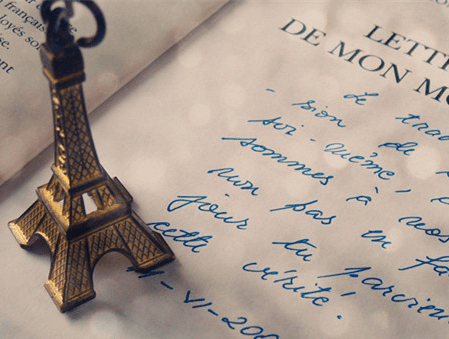 français
loyés
se.
LETT
DE MON M
- Le trav
sion de
soi-même,
sommes à nos
non pas en fa
jour tu parvien
cette vérité.
- VI - 200